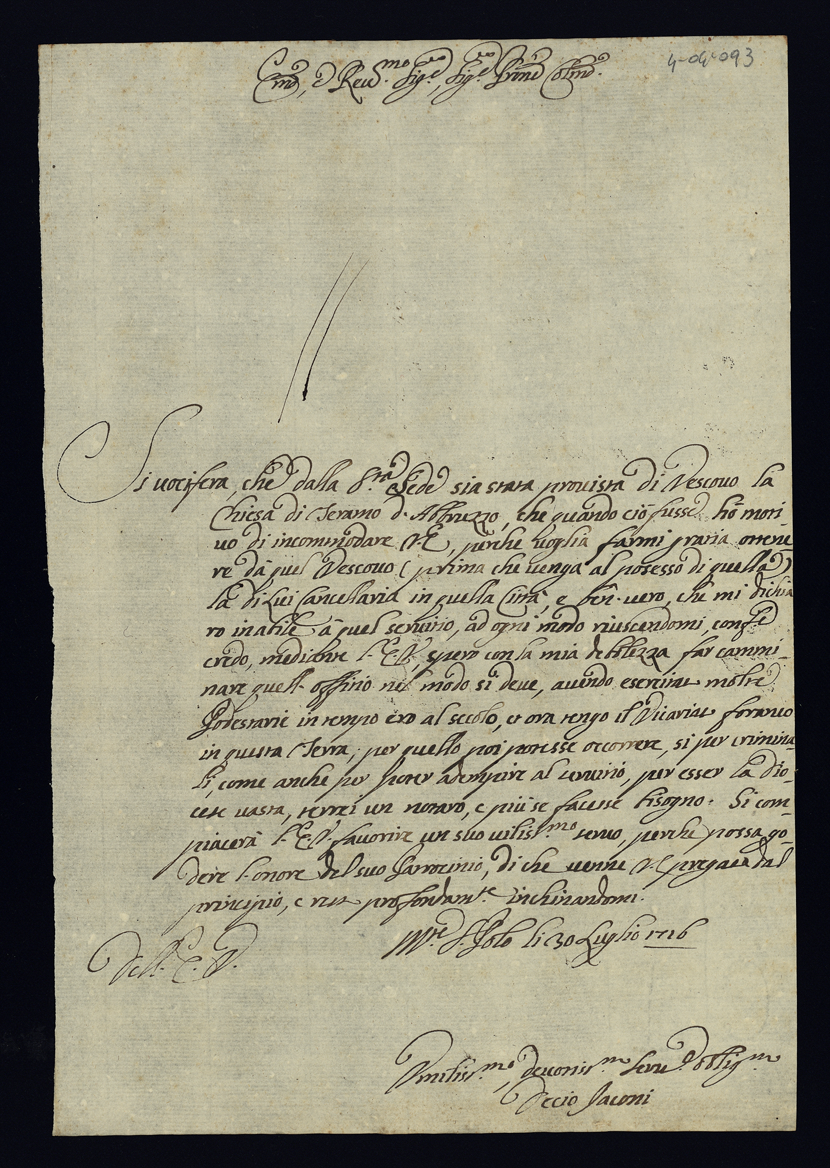 4-04-093
Em̃o, e Reu.mo Sig.re, Sig.re Pñe Colmo.
Si uocifera, che dalla S.ta Sede sia stata prouista di Vescouo la
Chiesa di Teramo d'Abbruzzo, che quando ciò fusse hò moti-
uo di incommodare V.E., perche uoglia farmi gratia ottene-
re dà quel Vescouo (prima che uenga al posesso di quella)
la di Lui Cancellaria in quella Città, e ben uero, che mi dichia
ro inabile à quel seruitio, ad ogni modo riuscendomi, conf.e
credo, mediante l'E.V. spero con la mia debilezza far cammi-
nare quell'offitio nel modo si deue, auendo esercitat molte
Podestarie in tempo ero al secolo, et ora tengo il Vicariat foraneo
in questa Terra, per quello poi potesse occorrere, si per crimina-
li, come anche per poter adempire al seruitio, per esser la Dio-
cese uasta, terrei un notaro, e più se facesse bisogno. Si com-
piacerà l'E.V. fauorire un suo uiliss.mo seruo, perche possa go-
dere l'onore del suo Patrocinio, di che uenne V.E. pregata dal
principio, e resto profondam.te inchinandomi.
M.te S. Polo li 30 Luglio 1716
Dell'E.V.
Vmiliss.mo, deuotiss.mo Seru.e Oblig.mo
Decio Jaconi